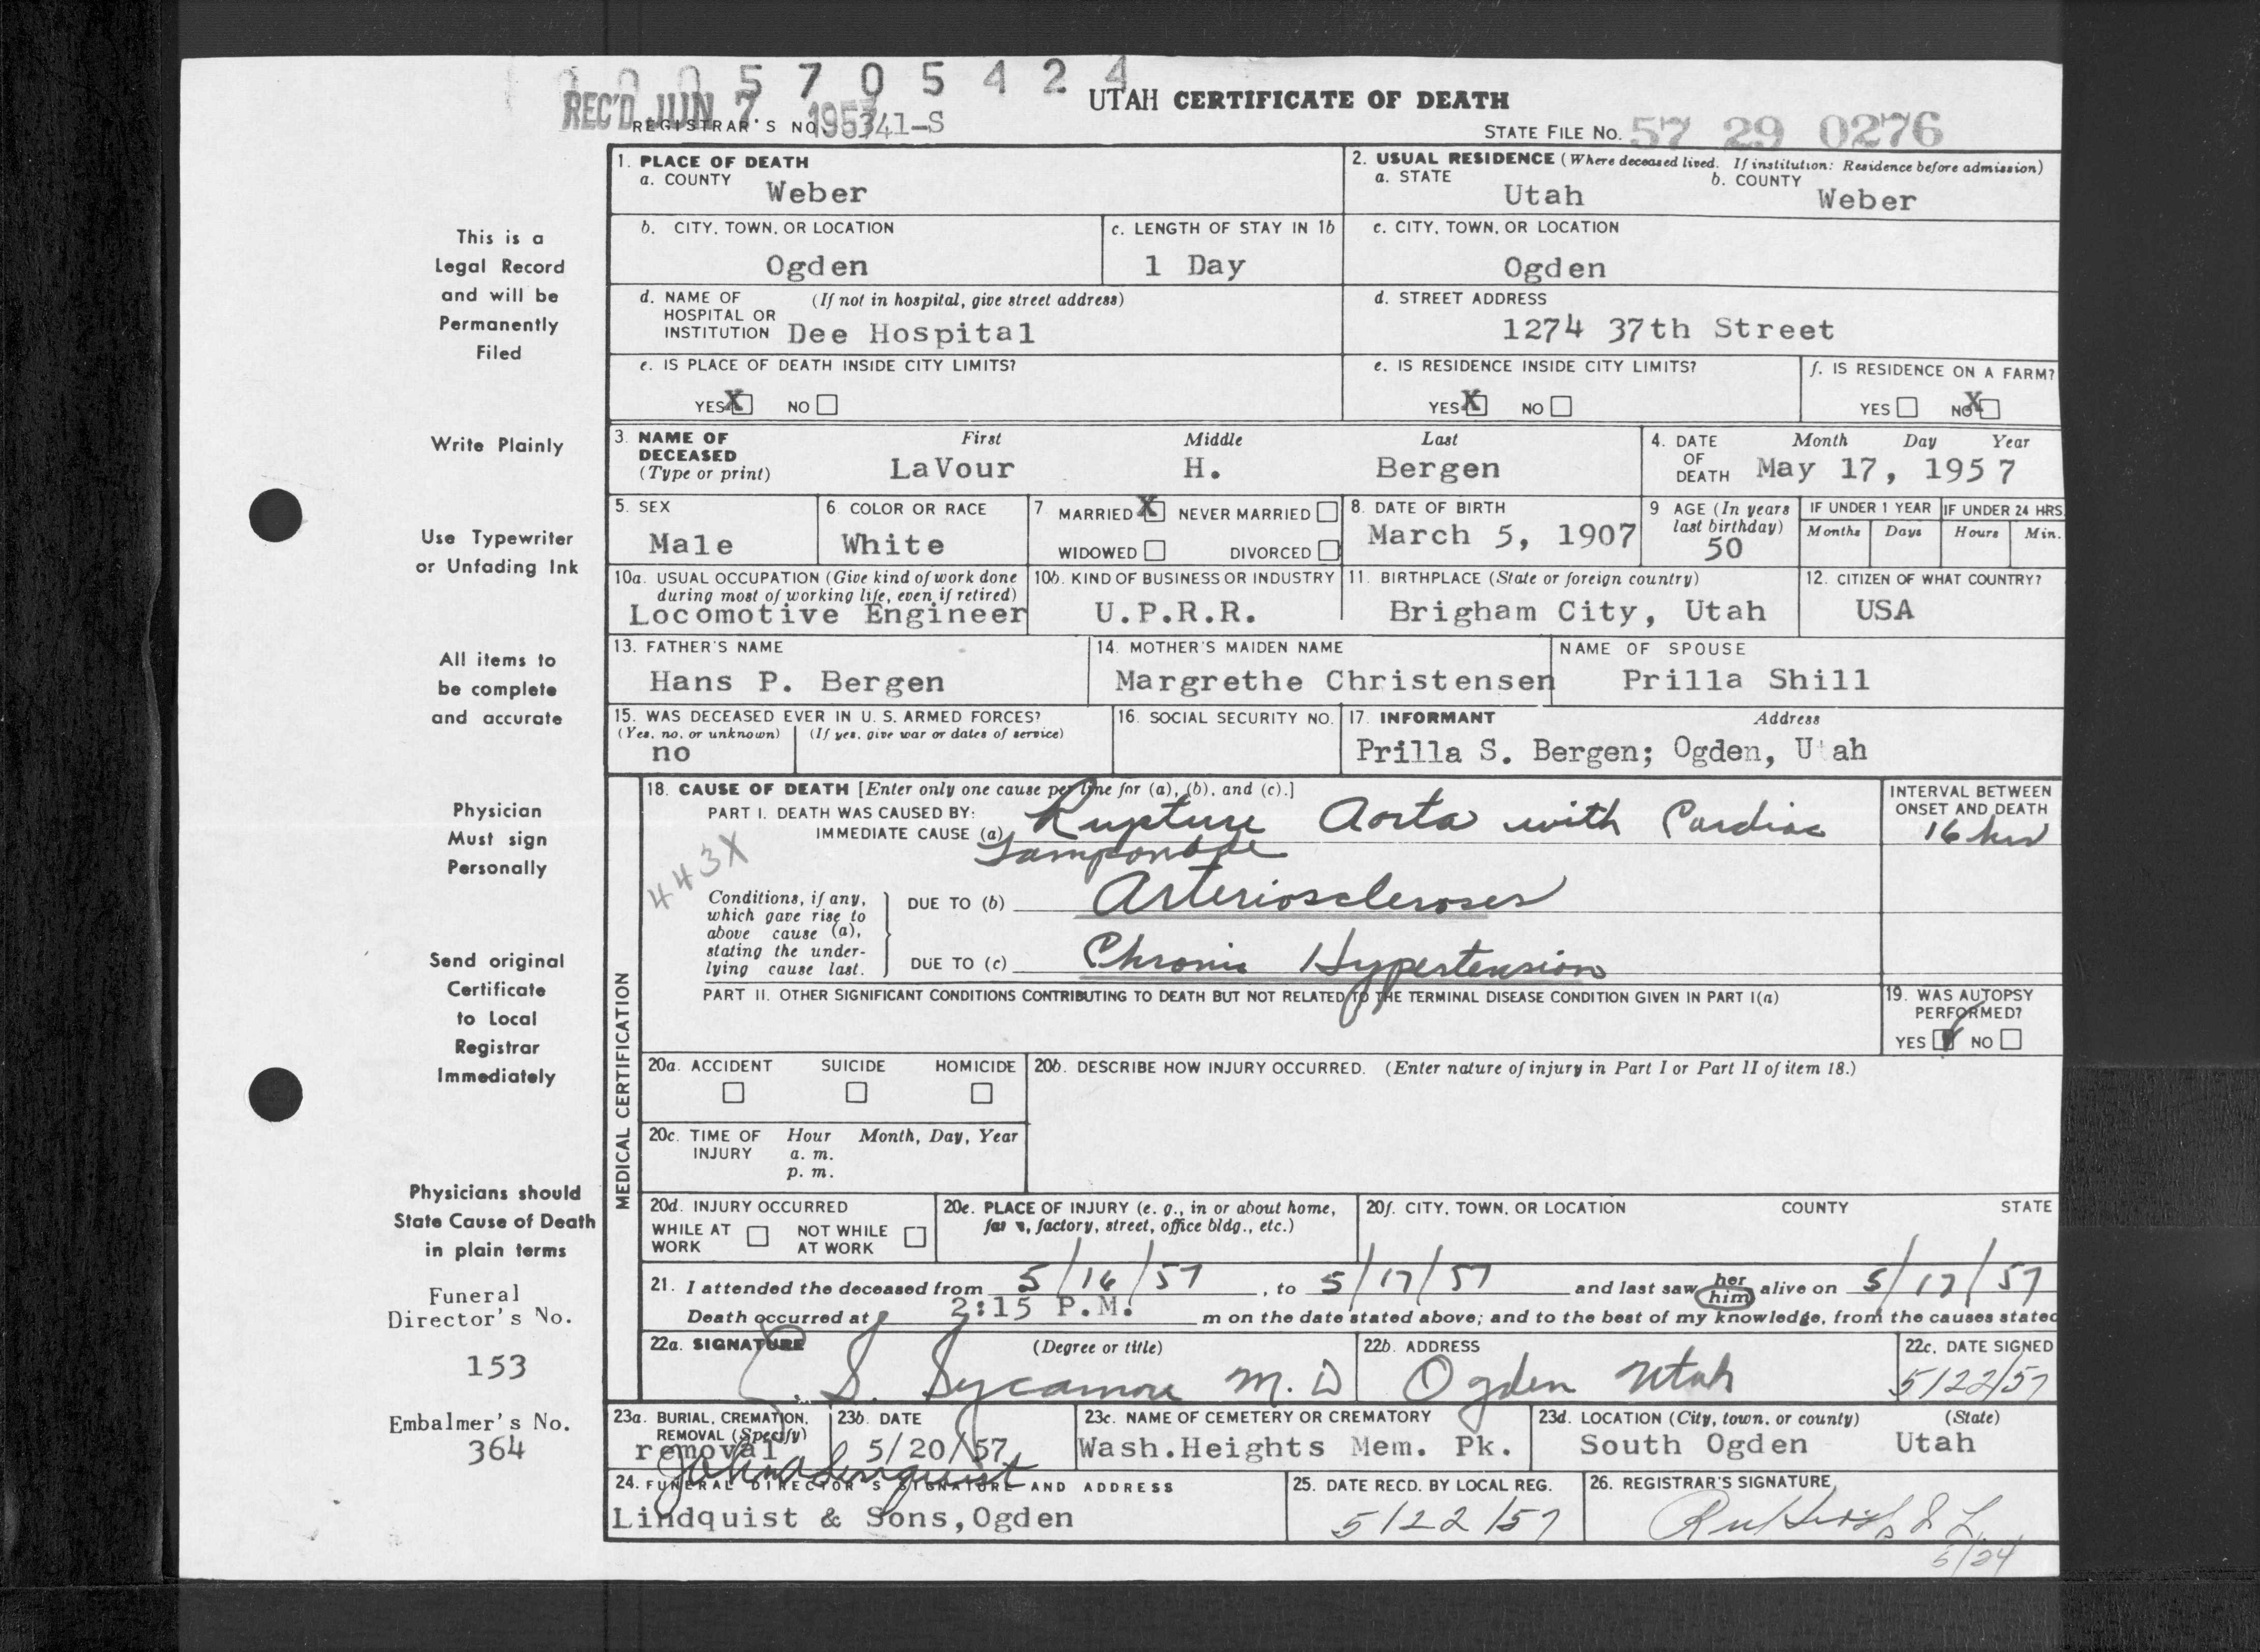 0 0 0 5 7 0 5 4 2 4
REC'D JUN 7 1957
UTAH CERTIFICATE OF DEATH
REGISTRAR'S NO. 341-S
STATE FILE NO. 57 29 0276
This is a
Legal Record
and will be
Permanently
Filed
Write Plainly
Use Typewriter
or Unfading Ink
All items to
be complete
and accurate
Physician
Must sign
Personally
Send original
Certificate
to Local
Registrar
Immediately
Physicians should
State Cause of Death
in plain terms
Funeral
Director's No.
153
Embalmer's No.
364
1. PLACE OF DEATH
a. COUNTY Weber
2. USUAL RESIDENCE (Where deceased lived. If institution: Residence before admission)
a. STATE Utah b. COUNTY Weber
b. CITY, TOWN, OR LOCATION
Ogden
c. LENGTH OF STAY IN 1b
1 Day
c. CITY, TOWN, OR LOCATION
Ogden
d. NAME OF HOSPITAL OR INSTITUTION (If not in hospital, give street address)
Dee Hospital
d. STREET ADDRESS
1274 37th Street
e. IS PLACE OF DEATH INSIDE CITY LIMITS?
YES X NO
e. IS RESIDENCE INSIDE CITY LIMITS?
YES X NO
f. IS RESIDENCE ON A FARM?
YES NO X
3. NAME OF DECEASED (Type or print) First Middle Last
LaVour H. Bergen
4. DATE OF DEATH Month Day Year
May 17, 1957
5. SEX
Male
6. COLOR OR RACE
White
7. MARRIED X NEVER MARRIED
WIDOWED DIVORCED
8. DATE OF BIRTH
March 5, 1907
9 AGE (In years last birthday)
50
IF UNDER 1 YEAR
Months Days
IF UNDER 24 HRS.
Hours Min.
10a. USUAL OCCUPATION (Give kind of work done
during most of working life, even if retired)
Locomotive Engineer
10b. KIND OF BUSINESS OR INDUSTRY
U.P.R.R.
11. BIRTHPLACE (State or foreign country)
Brigham City, Utah
12. CITIZEN OF WHAT COUNTRY?
USA
13. FATHER'S NAME
Hans P. Bergen
14. MOTHER'S MAIDEN NAME
Margrethe Christensen
NAME OF SPOUSE
Prilla Shill
15. WAS DECEASED EVER IN U. S. ARMED FORCES?
(Yes, no, or unknown) (If yes, give war or dates of service)
no
16. SOCIAL SECURITY NO.
17. INFORMANT Address
Prilla S. Bergen; Ogden, Utah
MEDICAL CERTIFICATION
18. CAUSE OF DEATH [Enter only one cause per line for (a), (b), and (c).]
PART I. DEATH WAS CAUSED BY:
IMMEDIATE CAUSE (a) Rupture Aorta with Cardiac
Tamponade
443X
INTERVAL BETWEEN
ONSET AND DEATH
16 hrs
Conditions, if any,
which gave rise to
above cause (a),
stating the under-
lying cause last.
DUE TO (b) Arteriosclerosis
DUE TO (c) Chronic Hypertension
PART II. OTHER SIGNIFICANT CONDITIONS CONTRIBUTING TO DEATH BUT NOT RELATED TO THE TERMINAL DISEASE CONDITION GIVEN IN PART I(a)
19. WAS AUTOPSY
PERFORMED?
YES NO
20a. ACCIDENT SUICIDE HOMICIDE
20b. DESCRIBE HOW INJURY OCCURRED. (Enter nature of injury in Part I or Part II of item 18.)
20c. TIME OF INJURY Hour Month, Day, Year
a. m.
p. m.
20d. INJURY OCCURRED
WHILE AT WORK NOT WHILE AT WORK
20e. PLACE OF INJURY (e. g., in or about home,
farm, factory, street, office bldg., etc.)
20f. CITY, TOWN, OR LOCATION COUNTY STATE
21. I attended the deceased from 5/16/57, to 5/17/57 and last saw her him alive on 5/17/57
Death occurred at 2:15 P.M. m on the date stated above; and to the best of my knowledge, from the causes stated
22a. SIGNATURE (Degree or title)
S. Sycamore M.D
22b. ADDRESS
Ogden Utah
22c. DATE SIGNED
5/22/57
23a. BURIAL, CREMATION,
REMOVAL (Specify)
removal
23b. DATE
5/20/57
23c. NAME OF CEMETERY OR CREMATORY
Wash.Heights Mem. Pk.
23d. LOCATION (City, town, or county) (State)
South Ogden Utah
24. FUNERAL DIRECTOR'S SIGNATURE AND ADDRESS
Lindquist & Sons,Ogden
25. DATE RECD. BY LOCAL REG.
5/22/57
26. REGISTRAR'S SIGNATURE
5/24